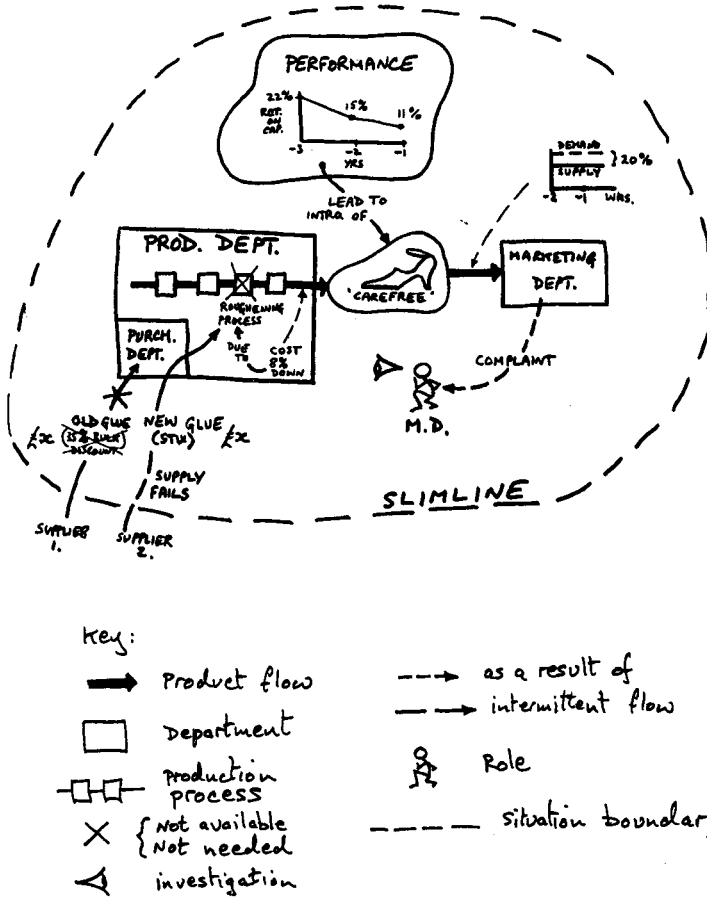 PERFORMANCE
22%
15%
11%
RET.
ON
CAP.
-3
-2
-1
YRS
DEMAND
20%
SUPPLY
-2
-1
WKS.
LEAD TO
INTRO OF
PROD. DEPT.
'CAREFREE'
MARKETING
DEPT.
ROUGHENING
PROCESS
PURCH.
DEPT.
DUE
TO
COST
8%
DOWN
COMPLAINT
M.D.
OLD GLUE
£x
(35% BULK
DISCOUNT)
NEW GLUE
(STUX)
£x
SUPPLY
FAILS
SLIMLINE
SUPPLIER
1.
SUPPLIER
2.
Key:
Product flow
Department
production
process
Not available
Not needed
investigation
as a result of
intermittent flow
Role
situation boundary